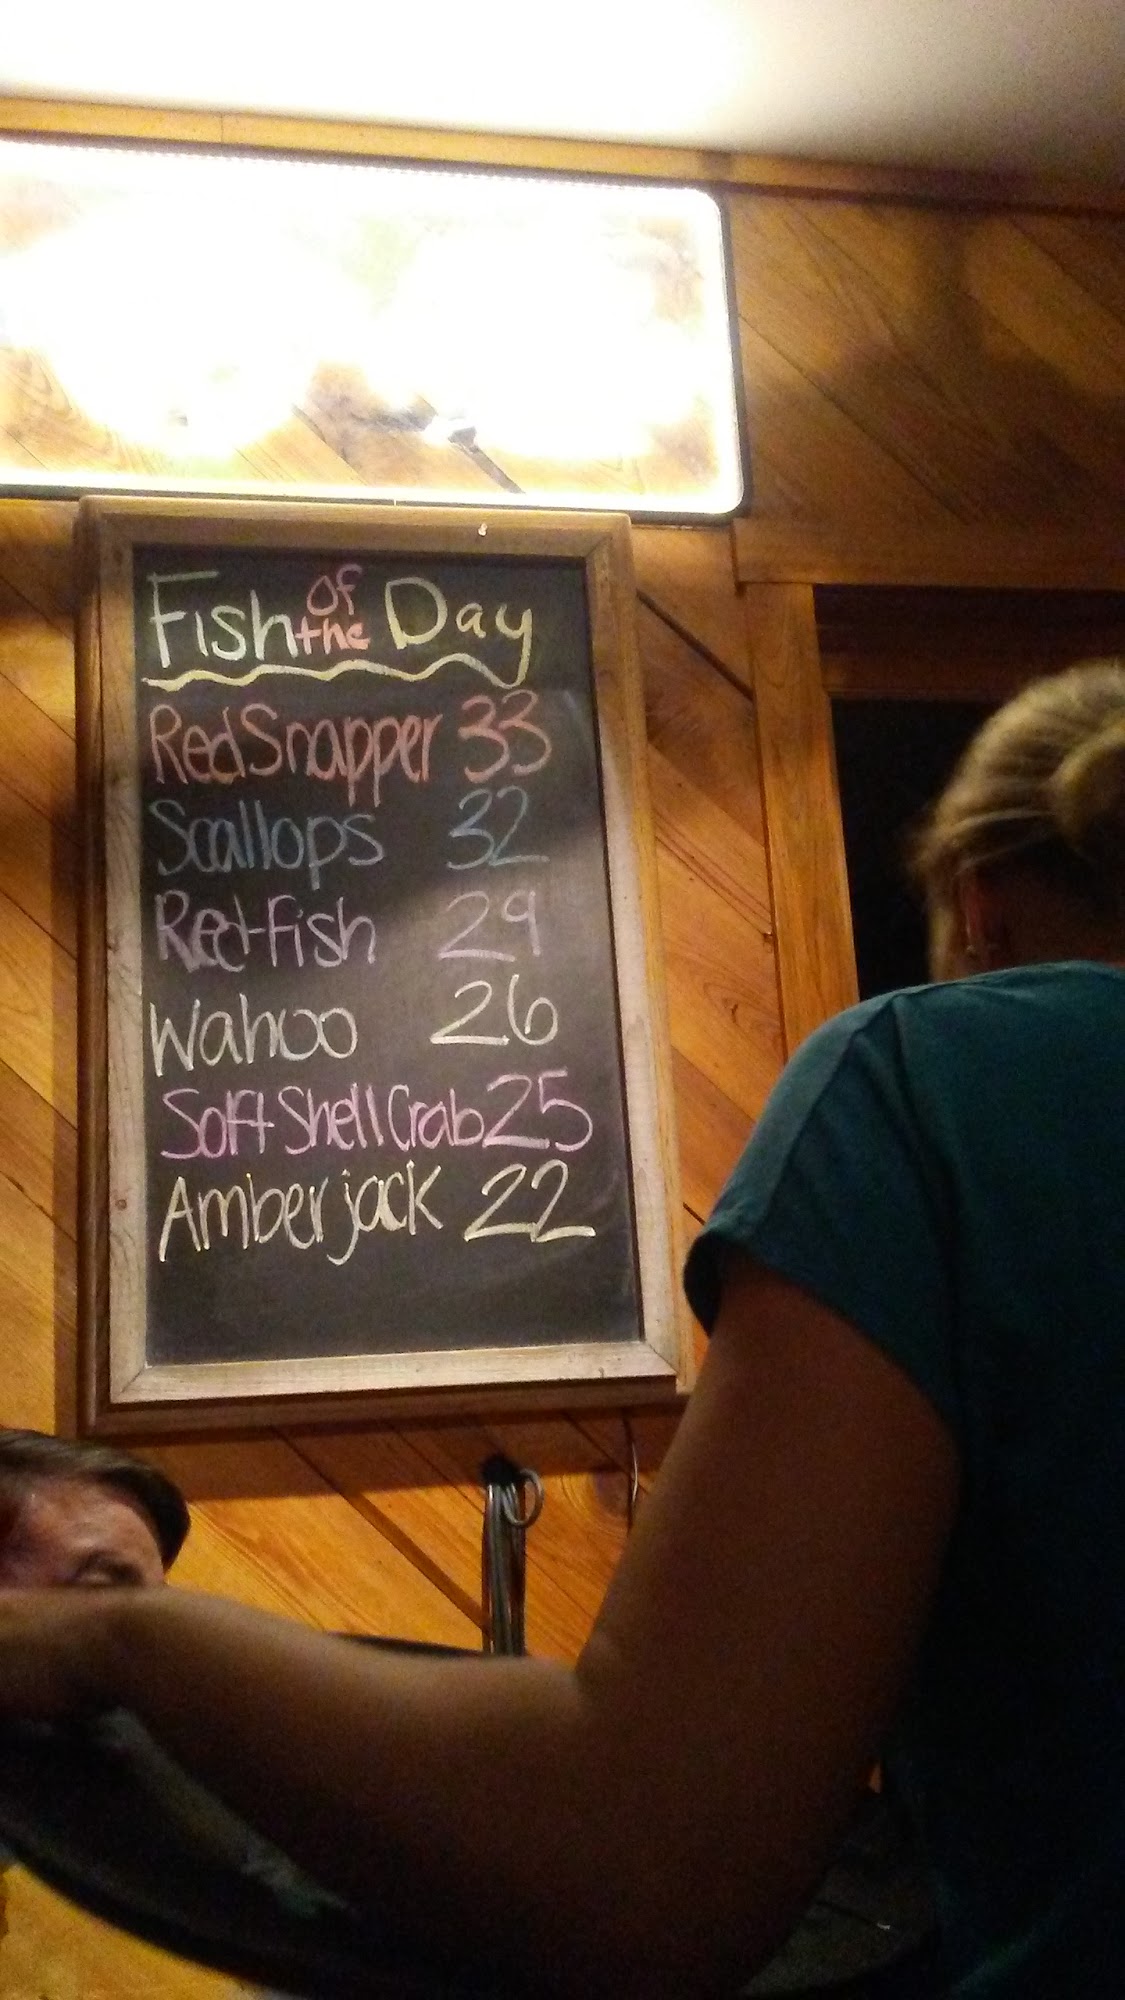 Fish of the Day
Red Snapper 33
Scallops 32
Red-fish 29
Wahoo 26
Soft Shell Crab 25
Amberjack 22